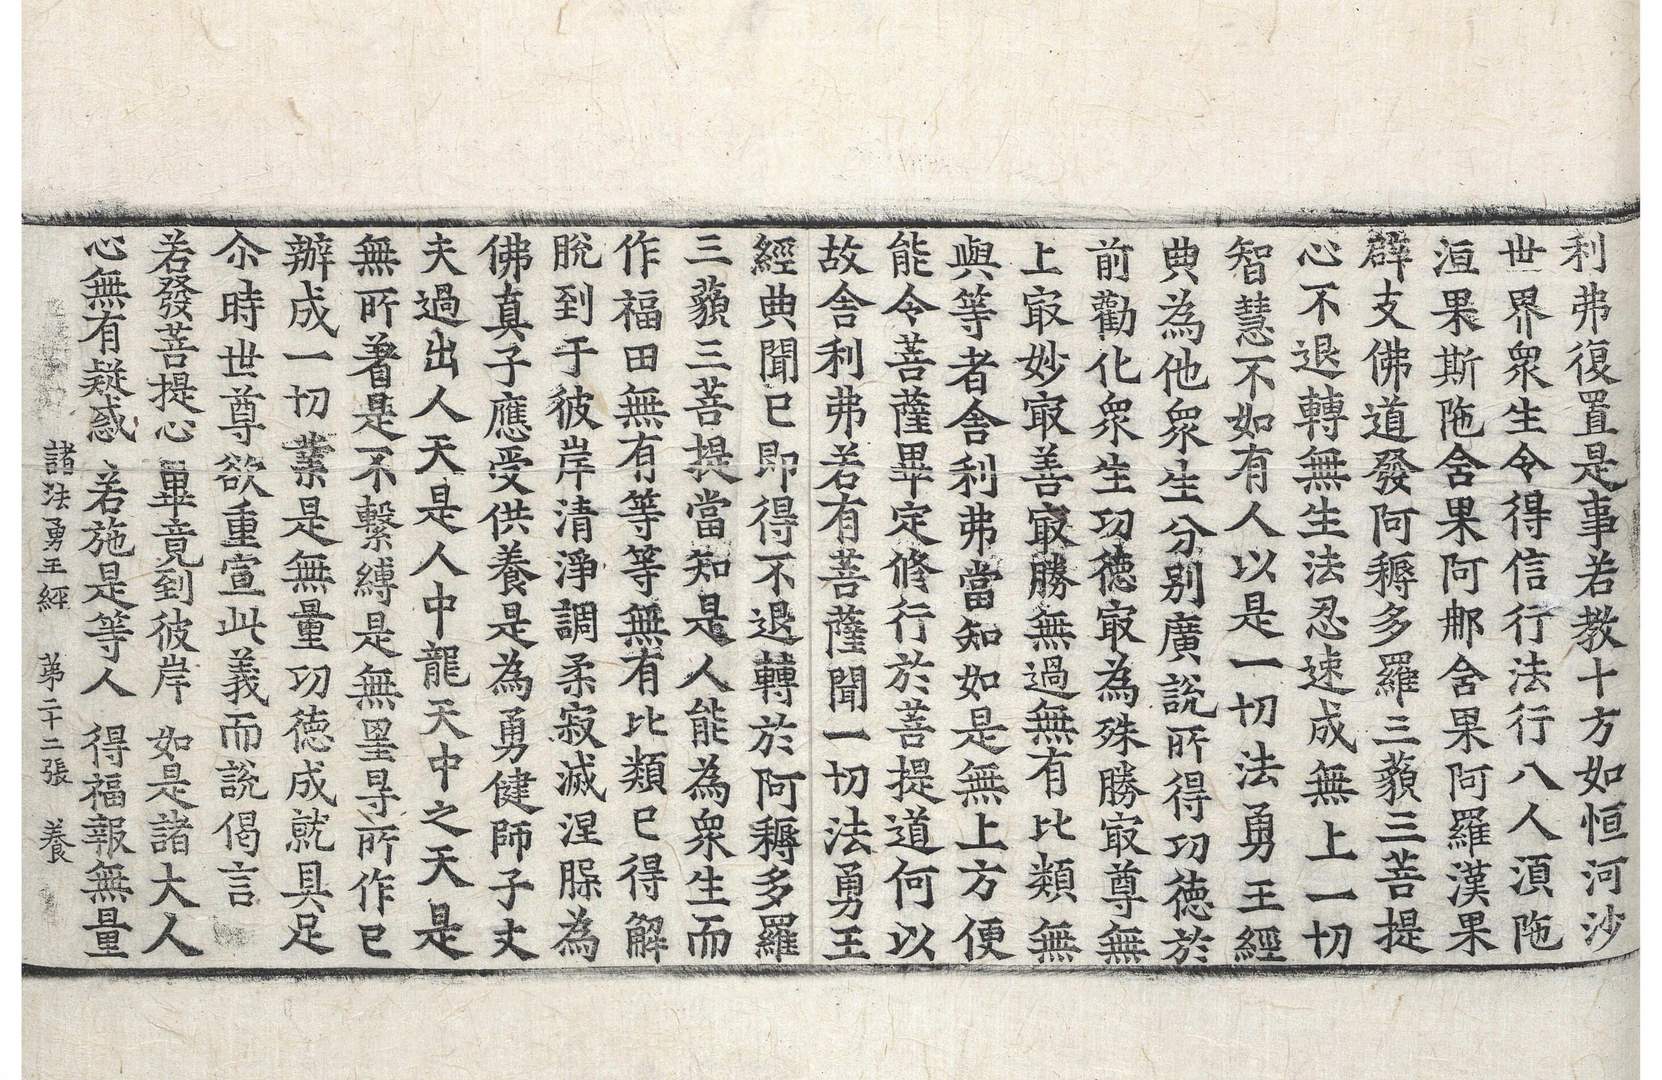 利弗復置是事若教十方如恒河沙
世界衆生令得信行法行八人湏陁
洹果斯陁含果阿那含果阿羅漢果
辟支佛道發阿耨多羅三藐三菩提
心不退轉無生法忍速成無上一切
智慧不如有人以是一切法勇王經
典為他衆生分别廣說所得功德於
前勸化衆生功德㝡為殊勝㝡尊無
上㝡妙㝡善㝡勝無過無有比類無
與等者舍利弗當知如是無上方便
能令菩薩畢定修行於菩提道何以
故舍利弗若有菩薩聞一切法勇王
經典聞已即得不退轉於阿耨多羅
三藐三菩提當知是人能為衆生而
作福田無有等等無有比類已得解
脫到于彼岸清淨調柔寂滅涅槃為
佛真子應受供養是為勇健師子丈
夫過出人天是人中龍天中之天是
無所著是不繫縛是無罣㝵所作已
辦成一切業是無量功德成就具足
尒時世尊欲重宣此義而說偈言
若發菩提心 畢竟到彼岸 如是諸大人
心無有疑惑 若施是等人 得福報無量
諸法勇王經 苐二十二張 養